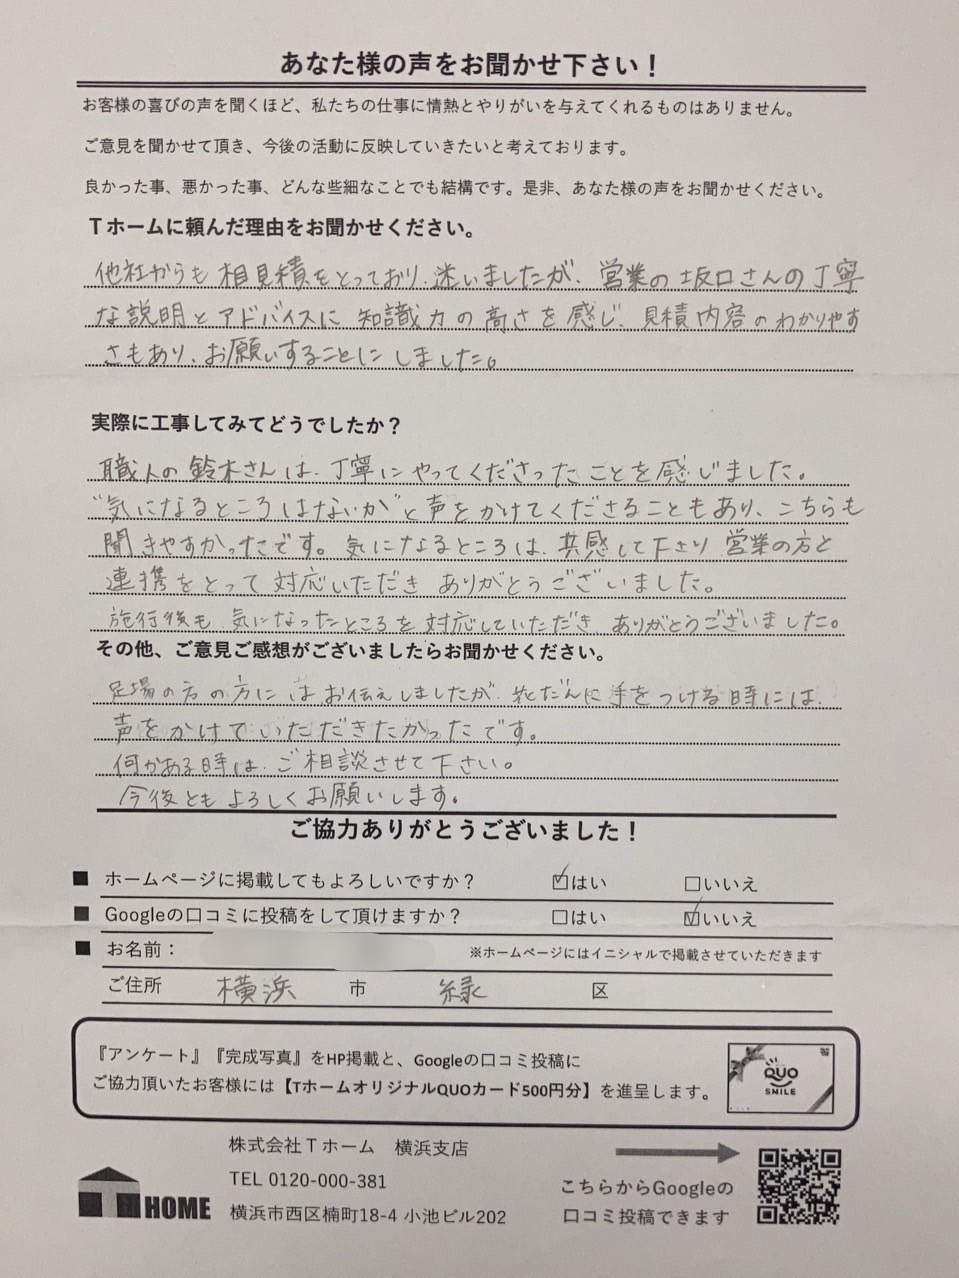 あなた様の声をお聞かせ下さい！
お客様の喜びの声を聞くほど、私たちの仕事に情熱とやりがいを与えてくれるものはありません。
ご意見を聞かせて頂き、今後の活動に反映していきたいと考えております。
良かった事、悪かった事、どんな些細なことでも結構です。是非、あなた様の声をお聞かせください。
Ｔホームに頼んだ理由をお聞かせください。
他社からも相見積をとっており、迷いましたが、営業の坂口さんの丁寧
な説明とアドバイスに知識力の高さを感じ、見積内容のわかりやす
さもあり、お願いすることにしました。
実際に工事してみてどうでしたか？
職人の鈴木さんは、丁寧にやってくださったことを感じました。
"気になるところはないか"と声をかけてくださることもあり、こちらも
聞きやすかったです。気になるところは、共感して下さり営業の方と
連携をとって対応いただきありがとうございました。
施行後も、気になったところを対応していただき、ありがとうございました。
その他、ご意見ご感想がございましたらお聞かせください。
足場の方の方にはお伝えしましたが、花だんに手をつける時には、
声をかけていただきたかったです。
何かある時は、ご相談させて下さい。
今後ともよろしくお願いします。
ご協力ありがとうございました！
■ ホームページに掲載してもよろしいですか？ ☑はい □いいえ
■ Googleの口コミに投稿をして頂けますか？ □はい ☑いいえ
■ お名前： ※ホームページにはイニシャルで掲載させていただきます
ご住所 横浜 市 緑 区
『アンケート』『完成写真』をHP掲載と、Googleの口コミ投稿に
ご協力頂いたお客様には【TホームオリジナルQUOカード500円分】を進呈します。
QUO
SMILE
株式会社Ｔホーム 横浜支店
TEL 0120-000-381
横浜市西区楠町18-4 小池ビル202
T HOME
こちらからGoogleの
口コミ投稿できます